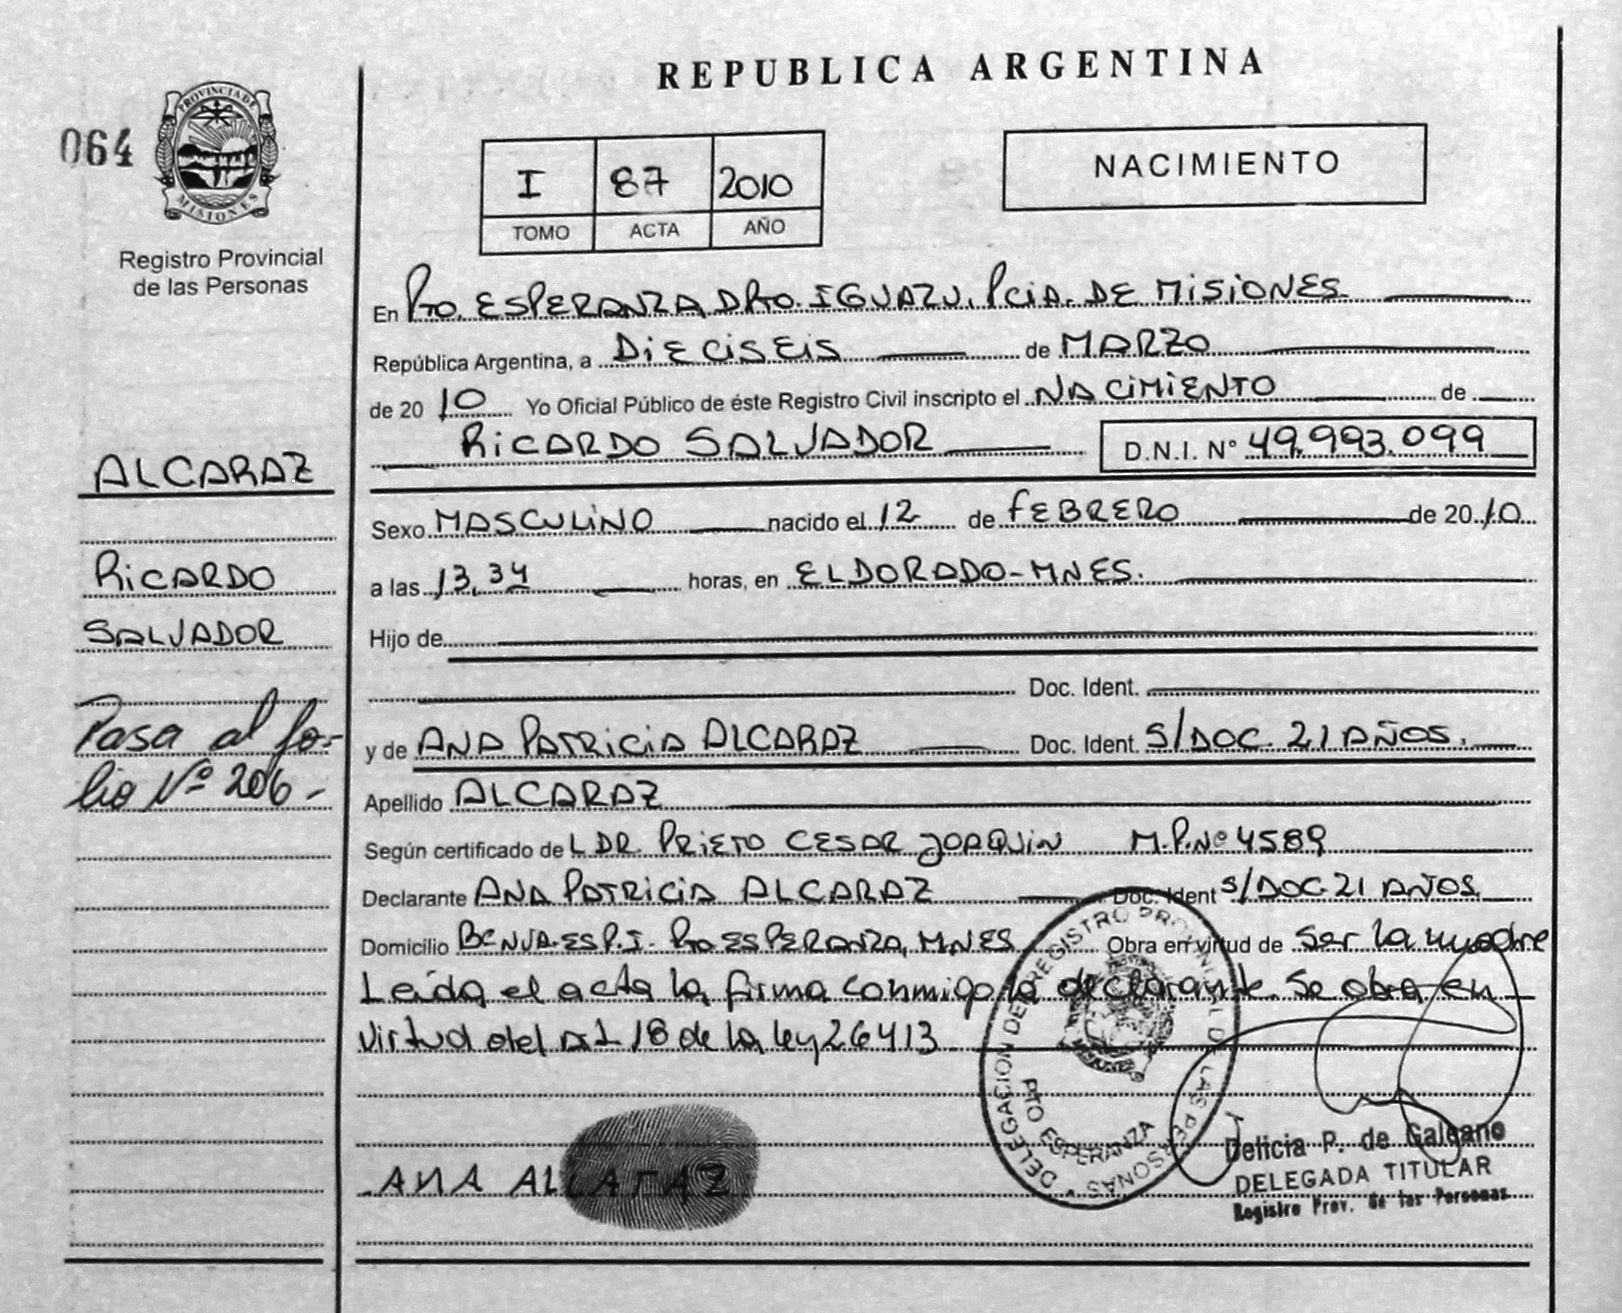 REPUBLICA ARGENTINA
064
PROVINCIA DE
MISIONES
Registro Provincial
de las Personas
I 87 2010
TOMO ACTA AÑO
NACIMIENTO
En Pto. ESPERANZA DPTO. IGUAZU. PCIA. DE MISIONES
República Argentina, a DIECISEIS de MARZO
de 20 10 Yo Oficial Público de éste Registro Civil inscripto el NACIMIENTO de
RICARDO SALVADOR D.N.I. N° 49.993.099
ALCARAZ
RICARDO
SALVADOR
Pasa al fo-
lio Nº 206 -
Sexo MASCULINO nacido el 12 de FEBRERO de 20 10
a las 13,34 horas, en ELDORADO-MNES.
Hijo de
Doc. Ident.
y de ANA PATRICIA ALCARAZ Doc. Ident. S/DOC. 21 AÑOS.
Apellido ALCARAZ
Según certificado de L DR. PRIETO CESAR JOAQUIN M.P.Nº 4589
Declarante ANA PATRICIA ALCARAZ Doc. Ident S/DOC. 21 AÑOS.
Domicilio Pto ESPERANZA, MNES Obra en virtud de ser la madre
Leída el acta la firma conmigo la declarante. Se obra en
virtud del Art 18 de la ley 26413
DELEGACION DE REGISTRO PROVINCIAL DE LAS PERSONAS
PTO ESPERANZA
ANA ALCARAZ
Delicia P. de Galeano
DELEGADA TITULAR
Registro Prov. de las Personas